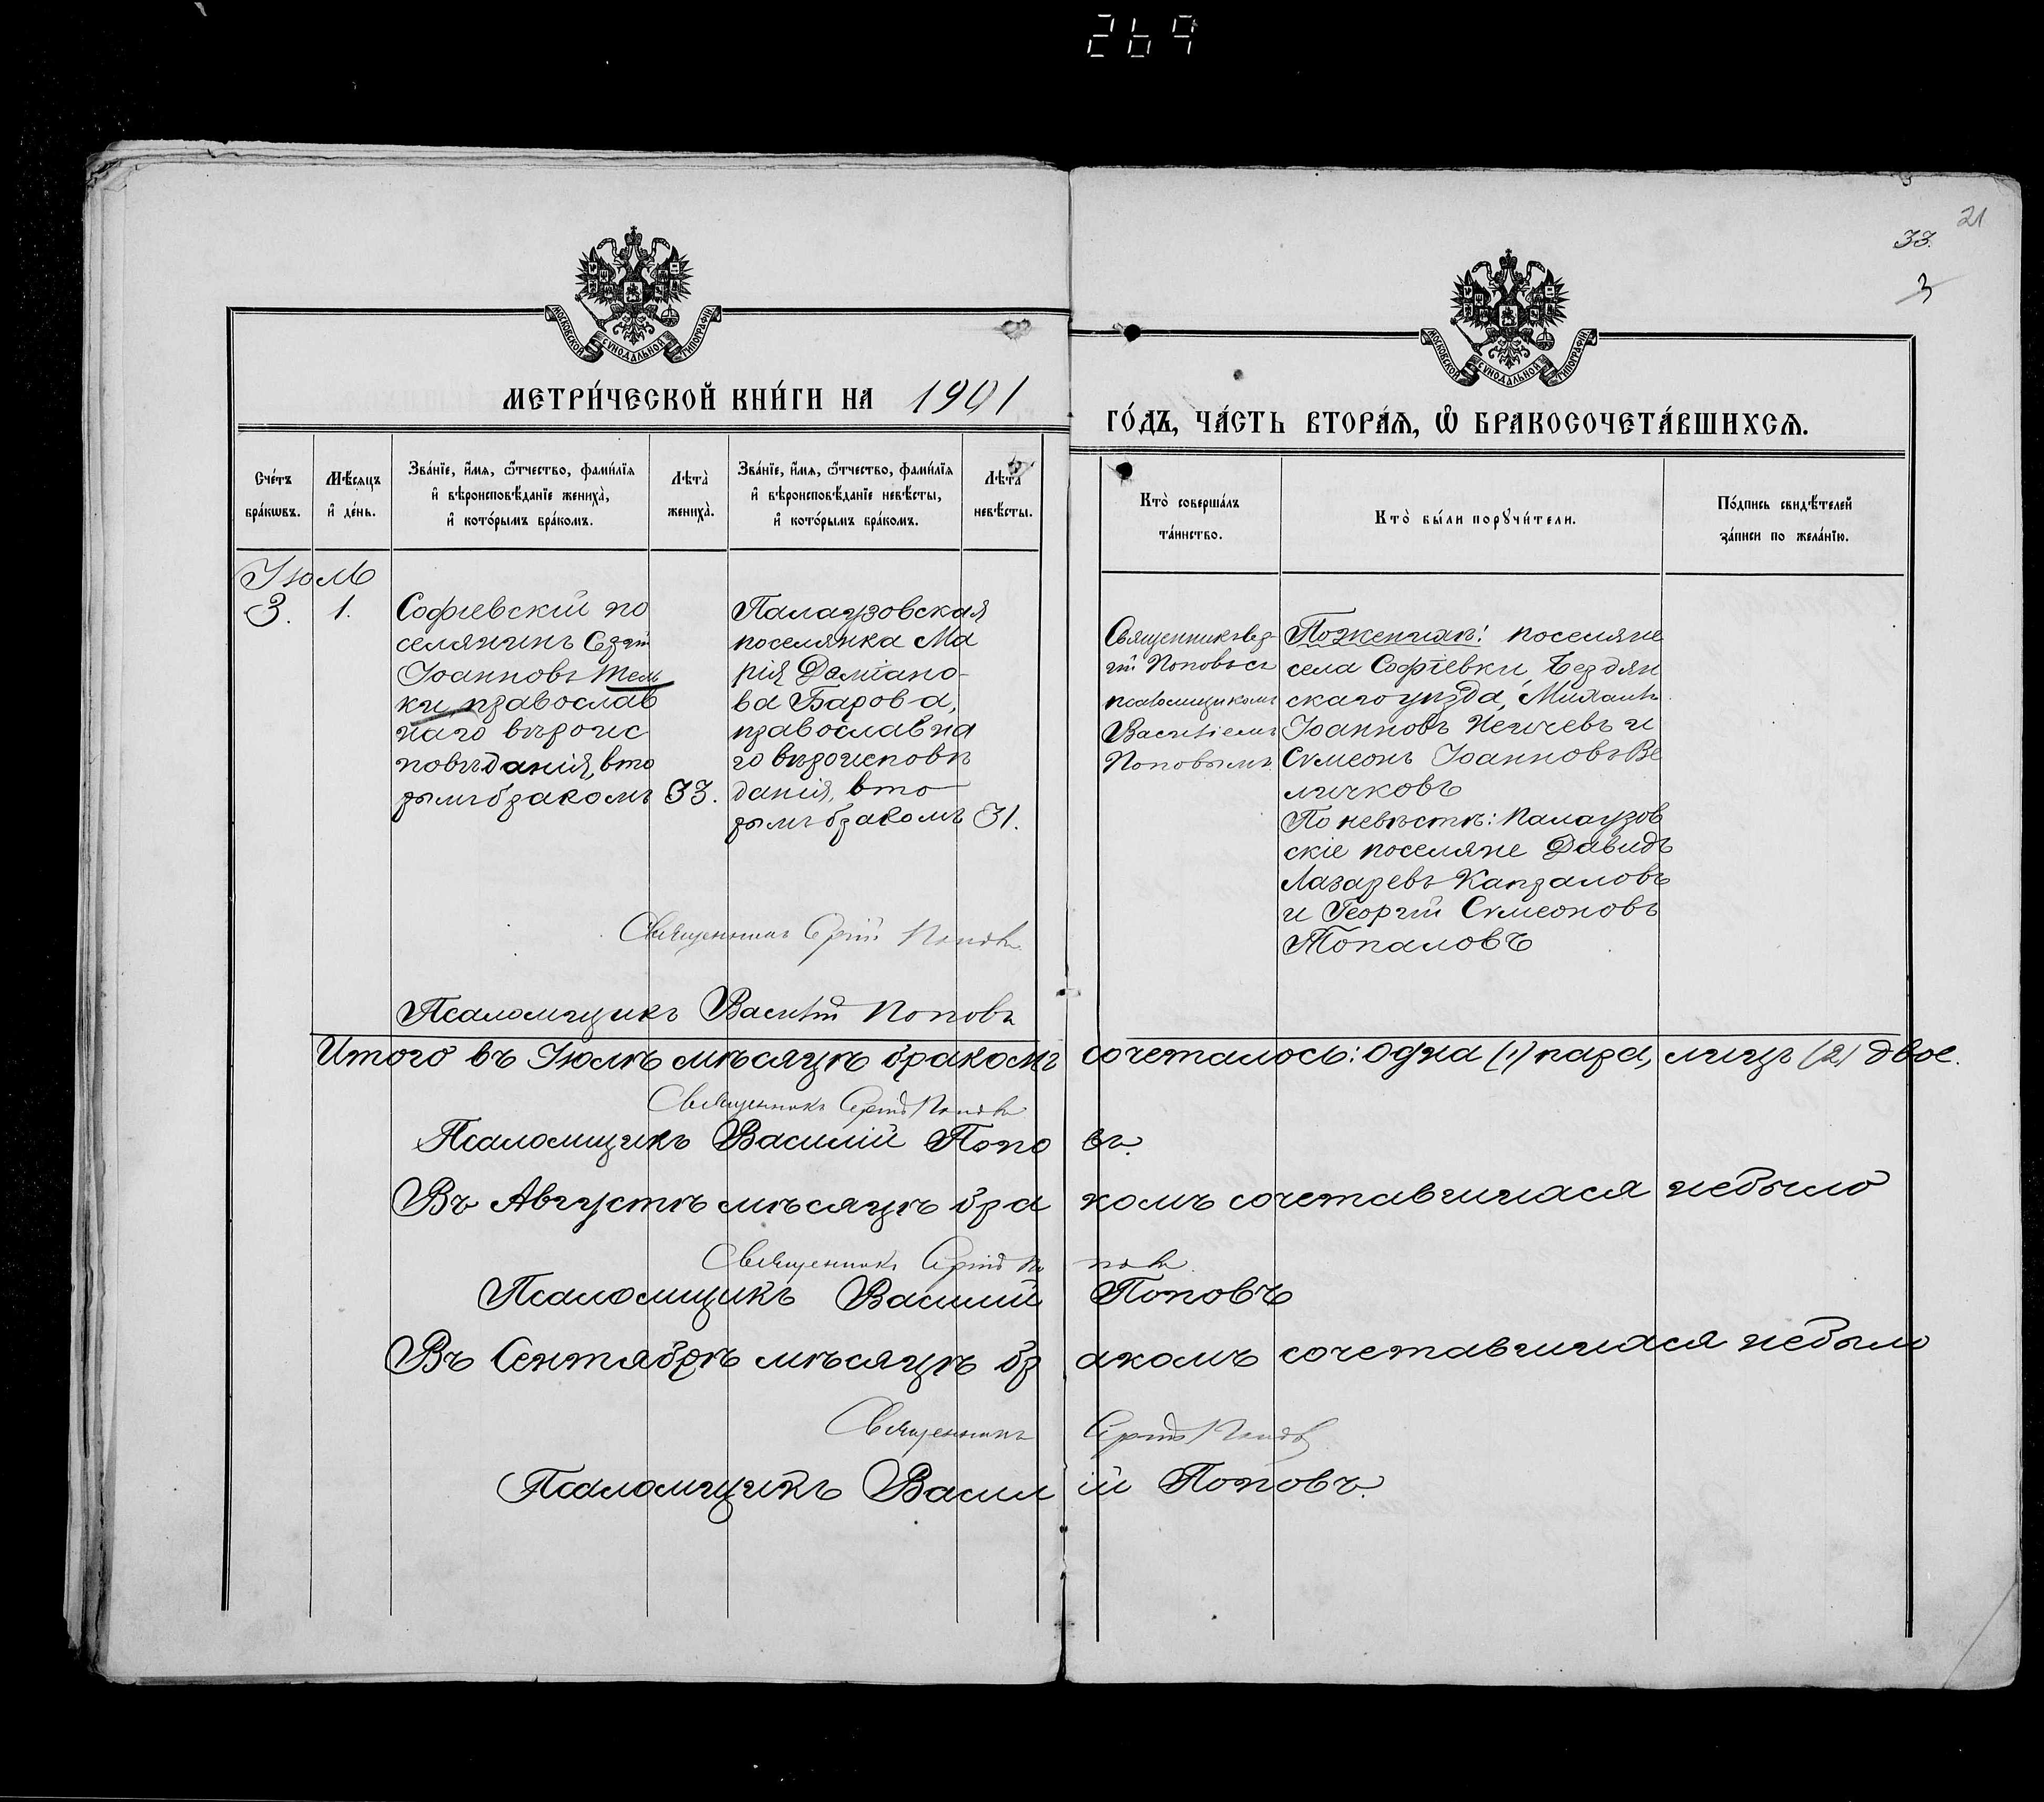 269
21
33.
3
МОСКОВСКОЙ СѴНОДАЛЬНОЙ ТИПОГРАФІИ
МОСКОВСКОЙ СѴНОДАЛЬНОЙ ТИПОГРАФІИ
МЕТРИ́ЧЕСКОЙ КНИ́ГИ НА 1901
ГО́ДЪ, ЧА́СТЬ ВТОРА́Ѧ, Ѡ҆ БРАКОСОЧЕТА́ВШИХСѦ.
Сче́тъ
бра́кѡвъ.
Мѣ́сяцъ
и҆ де́нь.
Зва́нїе, и҆́мя, ѻ҆́тчество, фами́лїя
и҆ вѣроисповѣ́данїе жениха̀,
и҆ кото́рымъ бра́комъ.
Лѣта̀
жениха̀.
Зва́нїе, и҆́мя, ѻ҆́тчество, фами́лїя
и҆ вѣроисповѣ́данїе невѣ́сты,
и҆ кото́рымъ бра́комъ.
Лѣта̀
невѣ́сты.
Кто̀ соверша́лъ
та́инство.
Кто̀ бы́ли порꙋчи́тели.
По́дпись свидѣ́телей
за́писи по жела́нїю.
Іюль
3.
1.
Софіевскій по
селянинъ Сергій
Іоанновъ
православ
наго вѣроис
повѣданія, вто
рымъ бракомъ
33.
Палаузовская
поселянка Ма
рія Даміано-
ва Барова,
православна
го вѣроисповѣ
данія, вто
рымъ бракомъ
31.
Священникъ Сер-
гій Поповъ съ
псаломщикомъ
Василіемъ
Поповымъ.
По женихѣ: поселяне
села Софіевки, Бердян
скаго уѣзда, Михаилъ
Іоанновъ и
Сѵмеонъ Іоанновъ Ве
личковъ
По невѣстѣ: Палаузов
скіе поселяне Давидъ
Лазаревъ Капраловъ
и Георгій Сѵмеоновъ
Топаловъ
Священникъ Сергій Поповъ
Псаломщикъ Василій Поповъ
Итого въ Іюлѣ мѣсяцѣ бракомъ сочеталось: одна (1) пара, лицъ (2) двое.
Священникъ Сергій Поповъ
Псаломщикъ Василій Поповъ.
Въ Августѣ мѣсяцѣ бракомъ сочетавшихся небыло
Священникъ Сергій Поповъ.
Псаломщикъ Василій Поповъ
Въ Сентябрѣ мѣсяцѣ бракомъ сочетавшихся небыло
Священникъ Сергій Поповъ
Псаломщикъ Василій Поповъ.